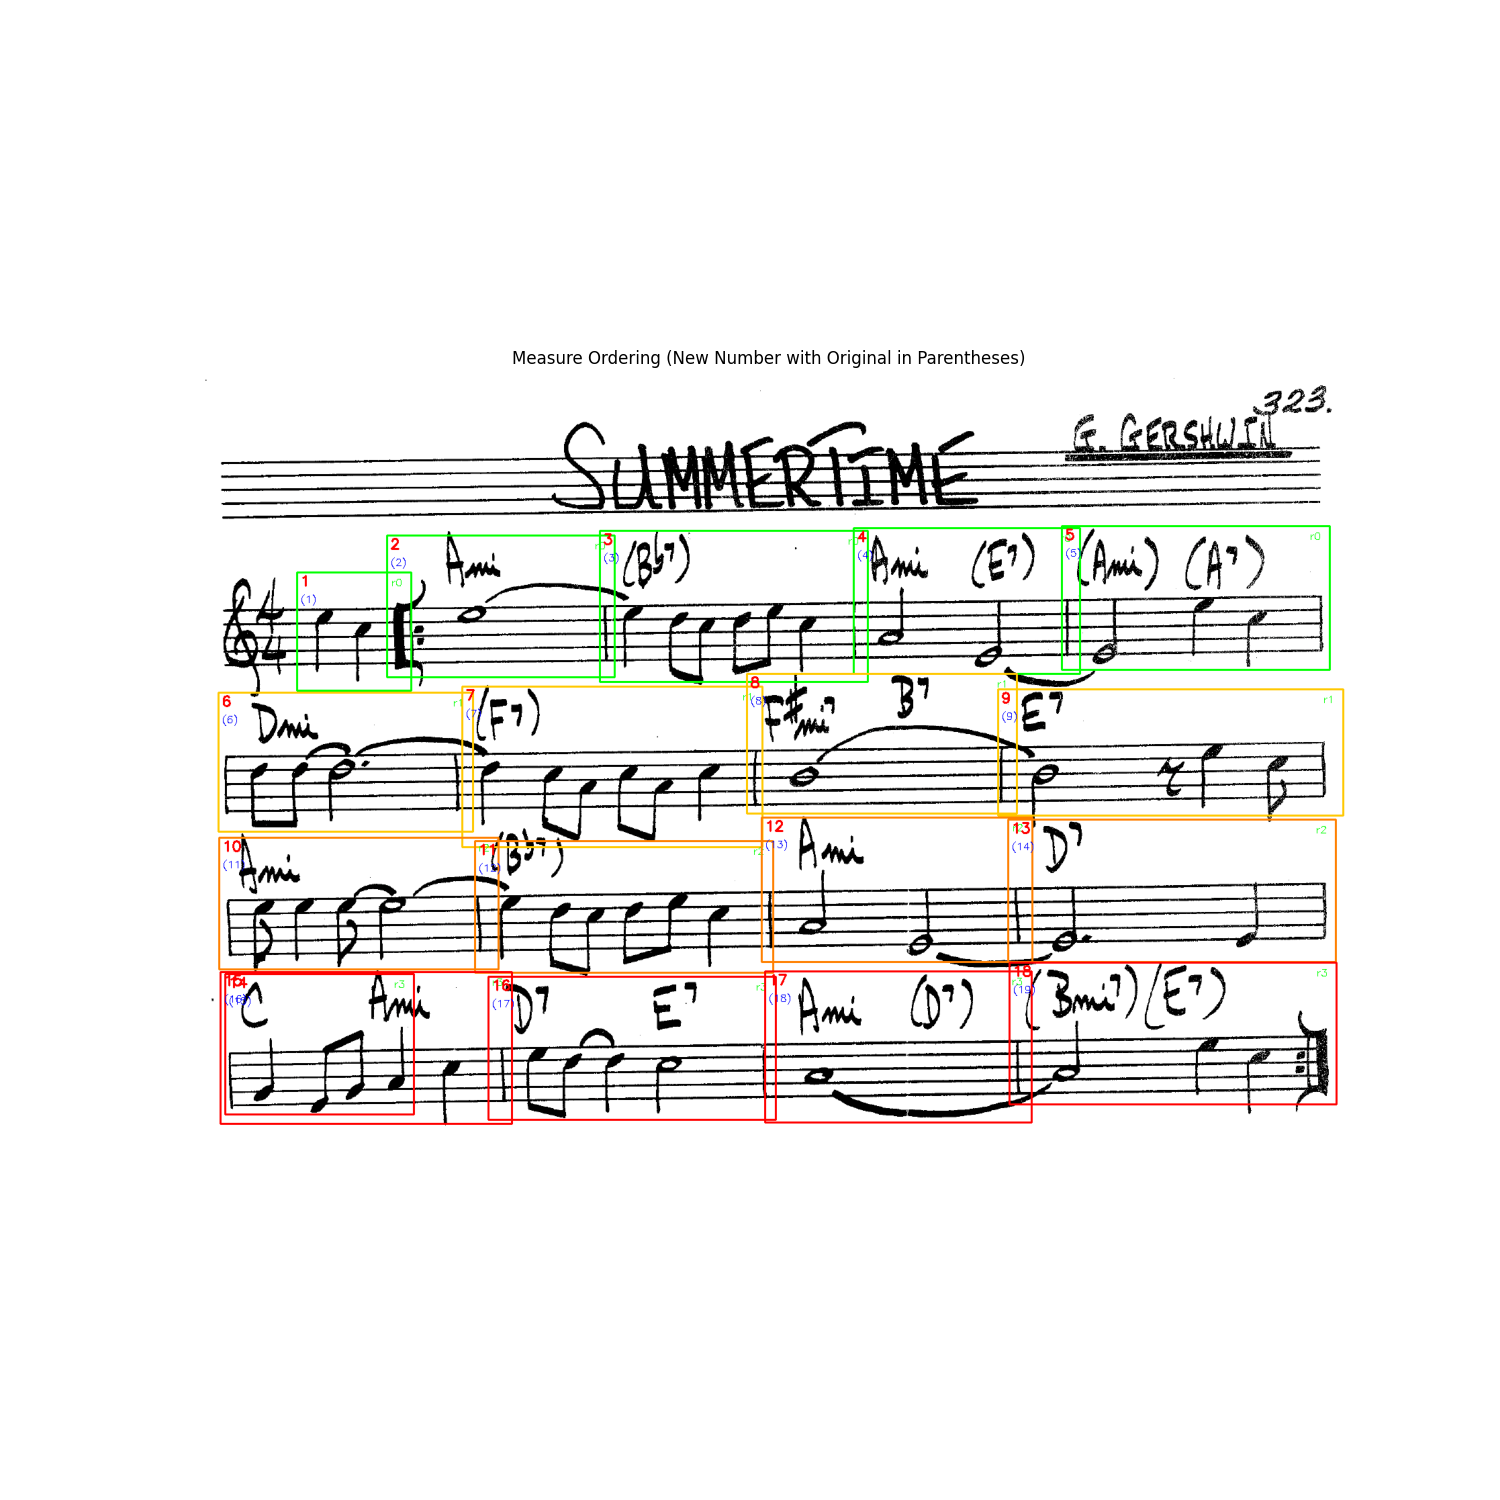 Measure Ordering (New Number with Original in Parentheses)
323.
G. GERSHWIN
SUMMERTIME
1 (1) r0
2 (2) Ami
3 (3) (Bb7)
4 (4) Ami (E7)
5 (5) (Ami) (A7) r0
4 4
6 (6) Dmi r1
7 (7) (F7)
8 (8) F#mi7 B7 r1
9 (9) E7 r1
10 (11) Ami
11 (12) (Bb7) r2
12 (13) Ami
13 (14) D7 r2
15 14 C Ami r3
16 (17) D7 E7
17 (18) Ami (D7)
18 (19) (Bmi7) (E7) r3